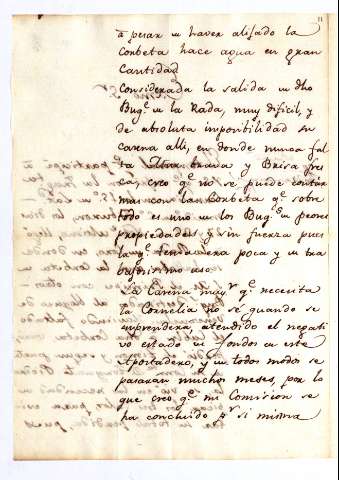 11
à pesar de haver alijado la
Corbeta hace agua en gran
Cantidad
Considerada la salida de dho
Buq.e de la Rada, muy dificil, y
de absoluta imposibilidad su
carena alli, en donde nunca fal
ta Mar brava y Brisa fres
ca, creo q.e no se puede contar
mas con la Corbeta q.e sobre
todo es uno de los Buq.s de peores
propiedades y sin fuerza pues
la q.e tenia era poca y de tra
bajosisimo uso.
La Carena may.r q.e necesita
la Cornelia no sé quando se
emprenderá, atendido el negati
vo estado de fondos de este
Apostadero, y de todos modos se
pasaran muchos meses, por lo
que creo q.e mi Comision se
ha concluido p.r si misma